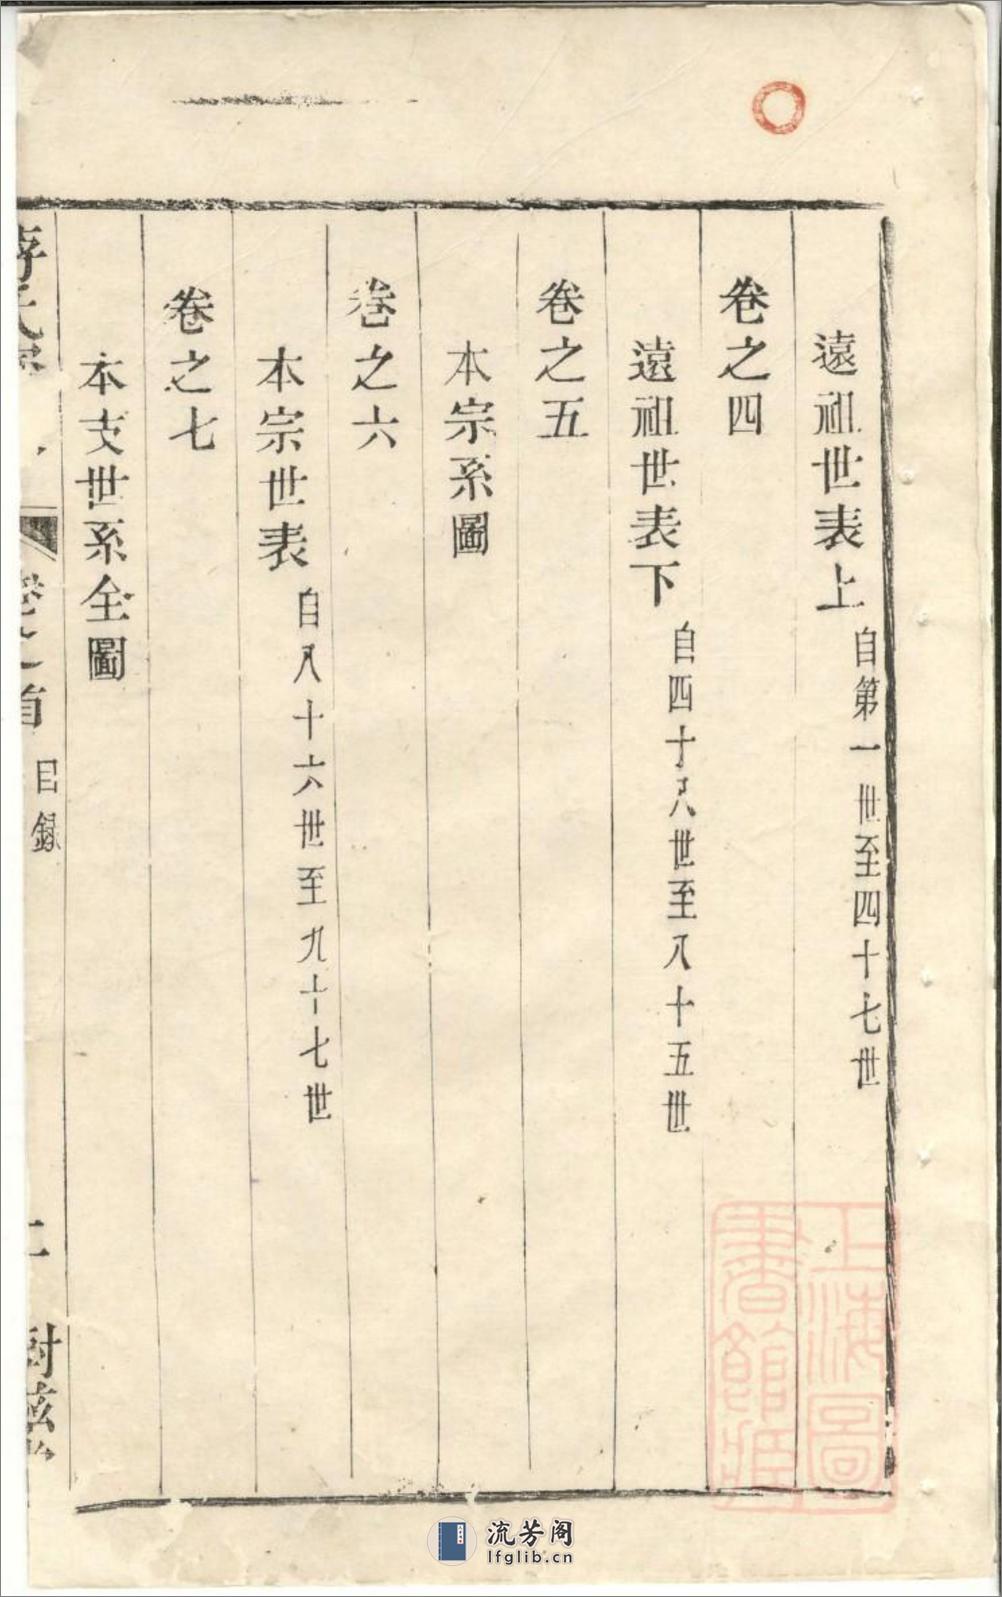 遠祖世表上 自第一世至四十七世
卷之四
遠祖世表下 自四十八世至八十五世
卷之五
本宗系圖
卷之六
本宗世表 自八十六世至九十七世
卷之七
本支世系全圖
卷之首 目錄
上海圖
書館藏
流芳阁
lfglib.cn